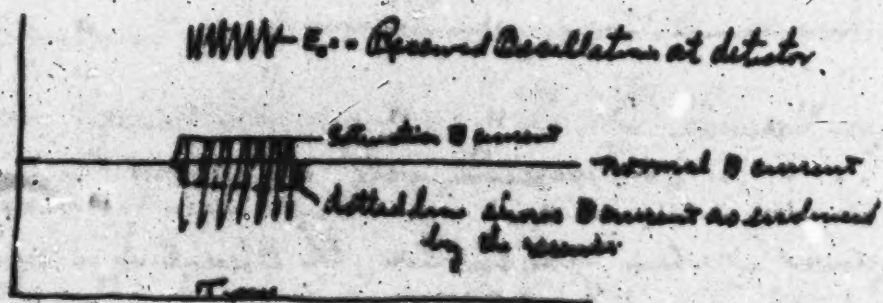 E. -- Received Oscillations at detector
Saturation B current
normal B current
dotted line shows B current as evidenced
by the receiver
Time